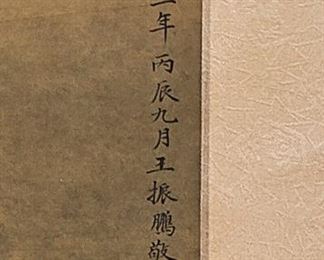 年丙辰九月王振鵬敬